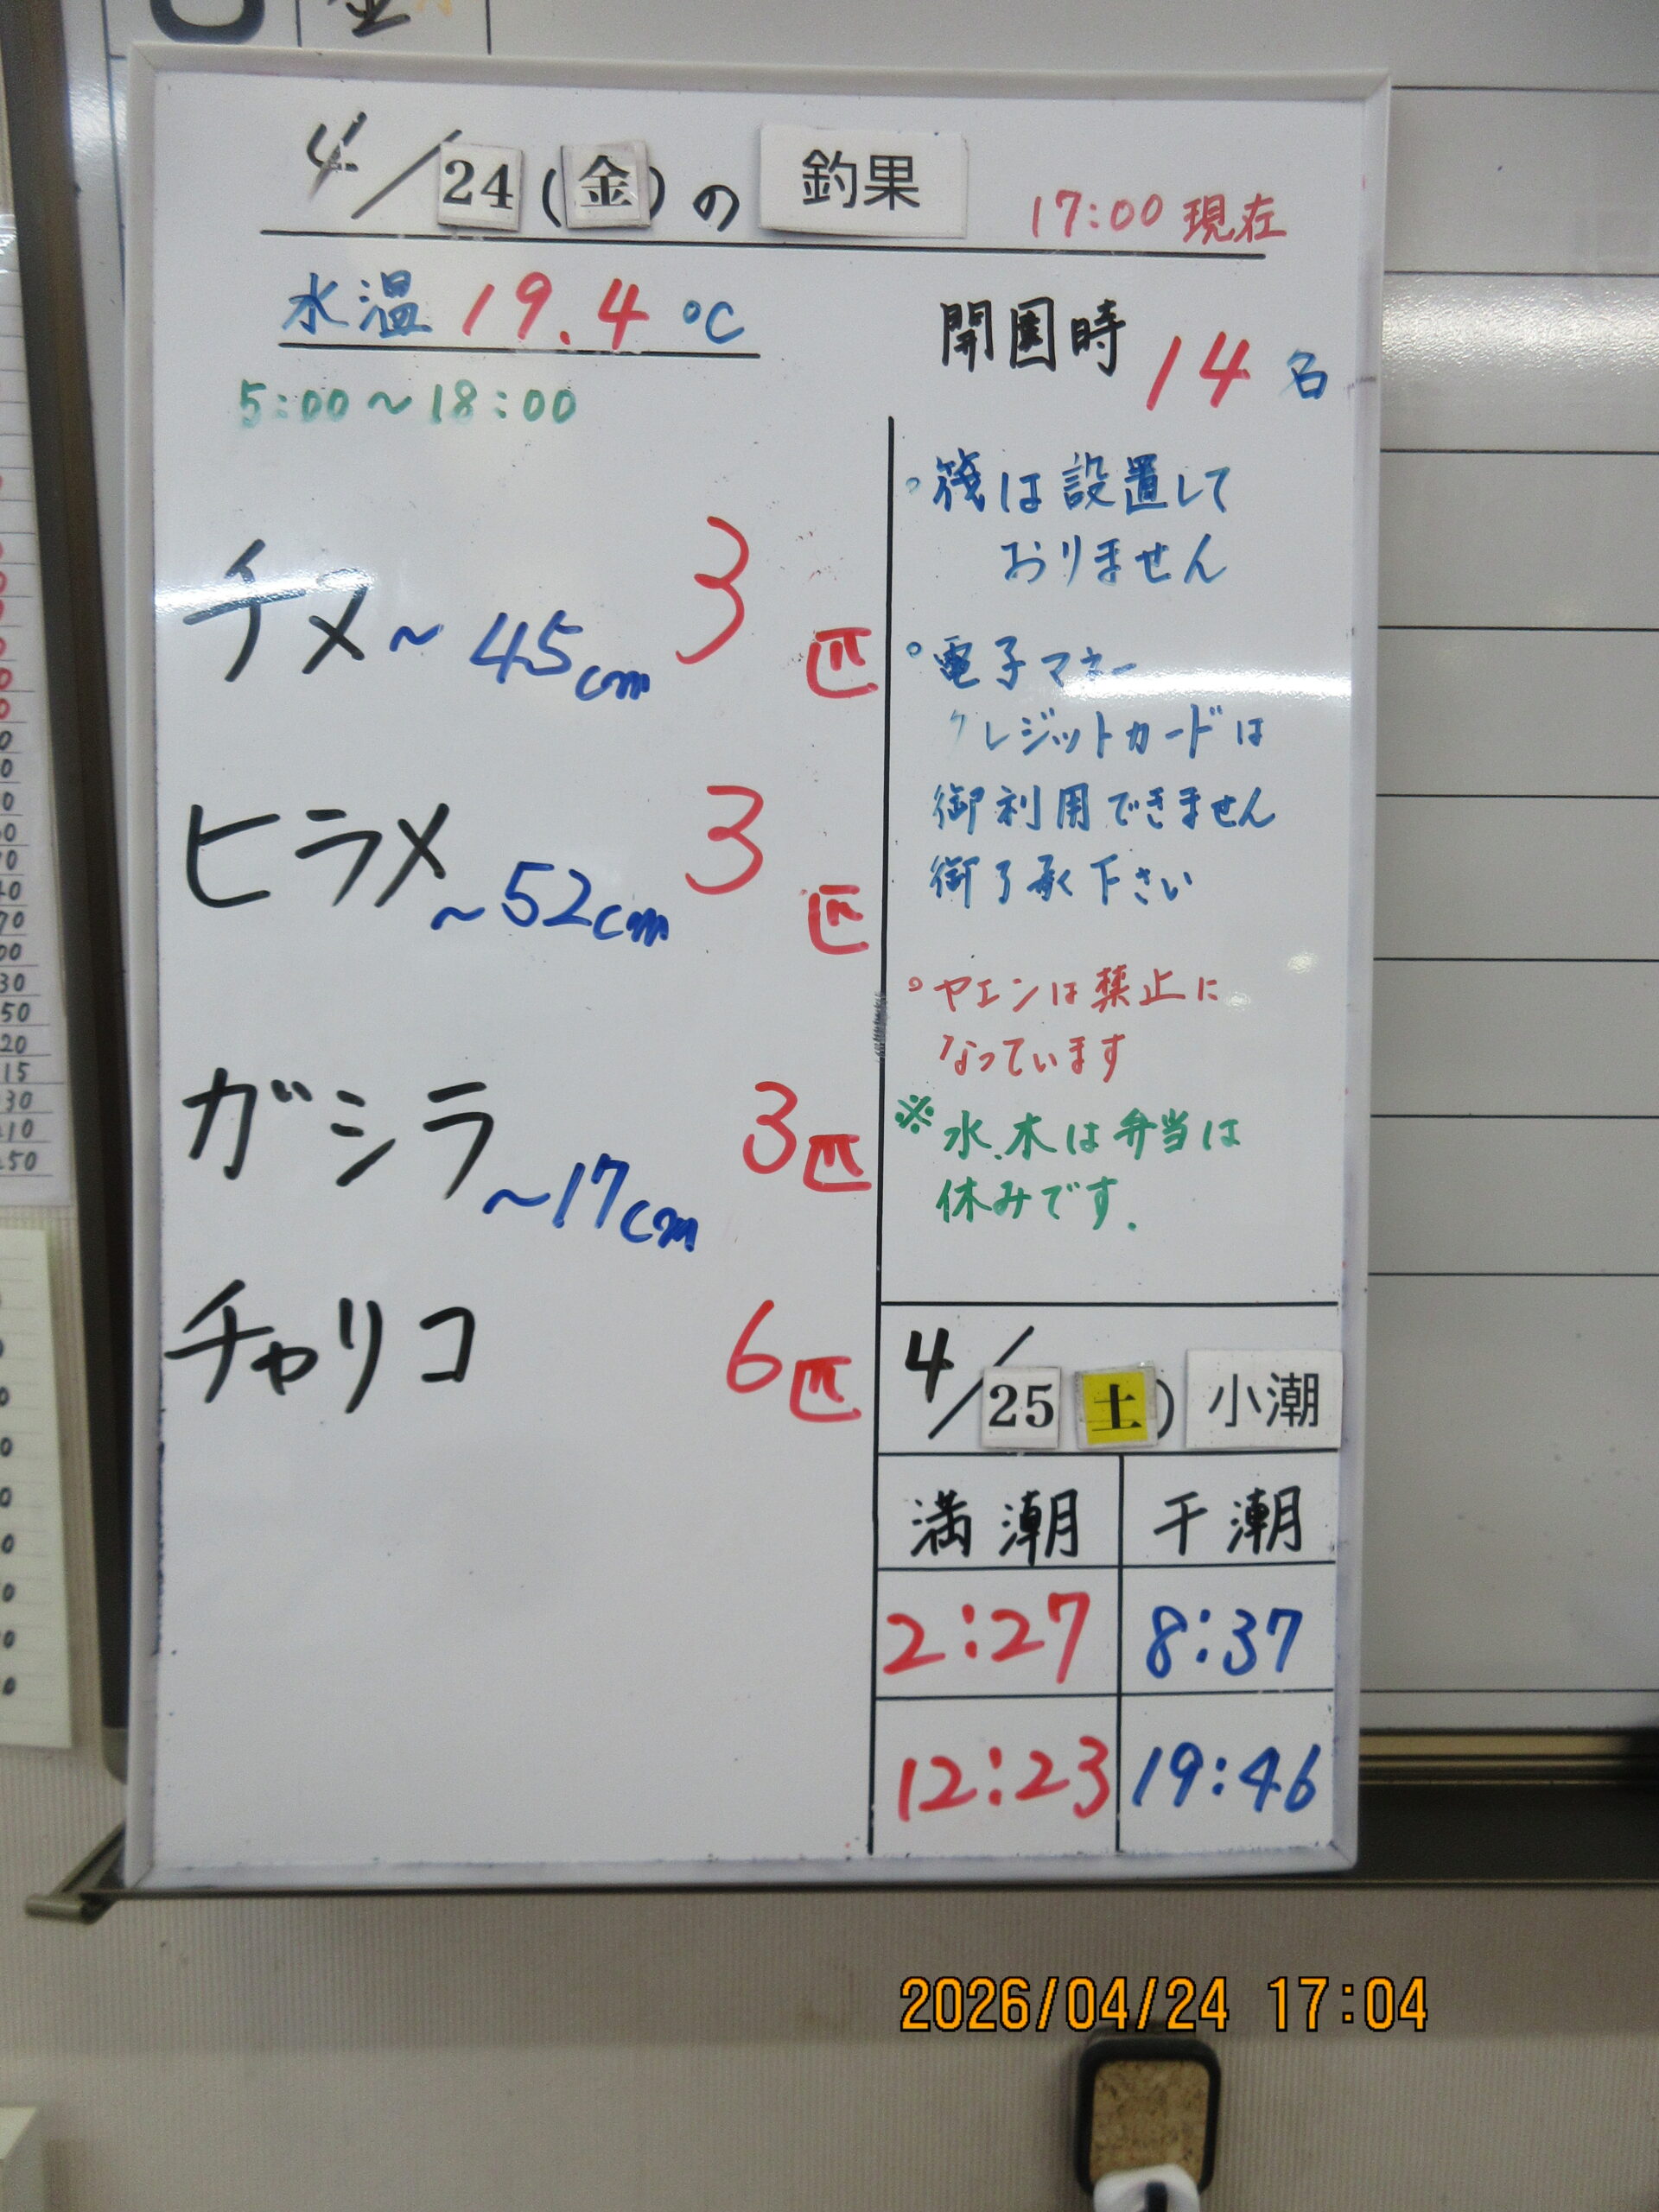 4/24(金)の 釣果 17:00 現在
水温 19.4 ℃
開園時 14 名
5:00~18:00
チヌ~45cm 3匹
ヒラメ~52cm 3匹
ガシラ~17cm 3匹
チャリコ 6匹
°筏は設置して
おりません
°電子マネー
クレジットカードは
御利用できません
御了承下さい
°ヤエンは禁止に
なっています
※水.木は弁当は
休みです.
4/25 土) 小潮
満潮 干潮
2:27 8:37
12:23 19:46
2026/04/24 17:04